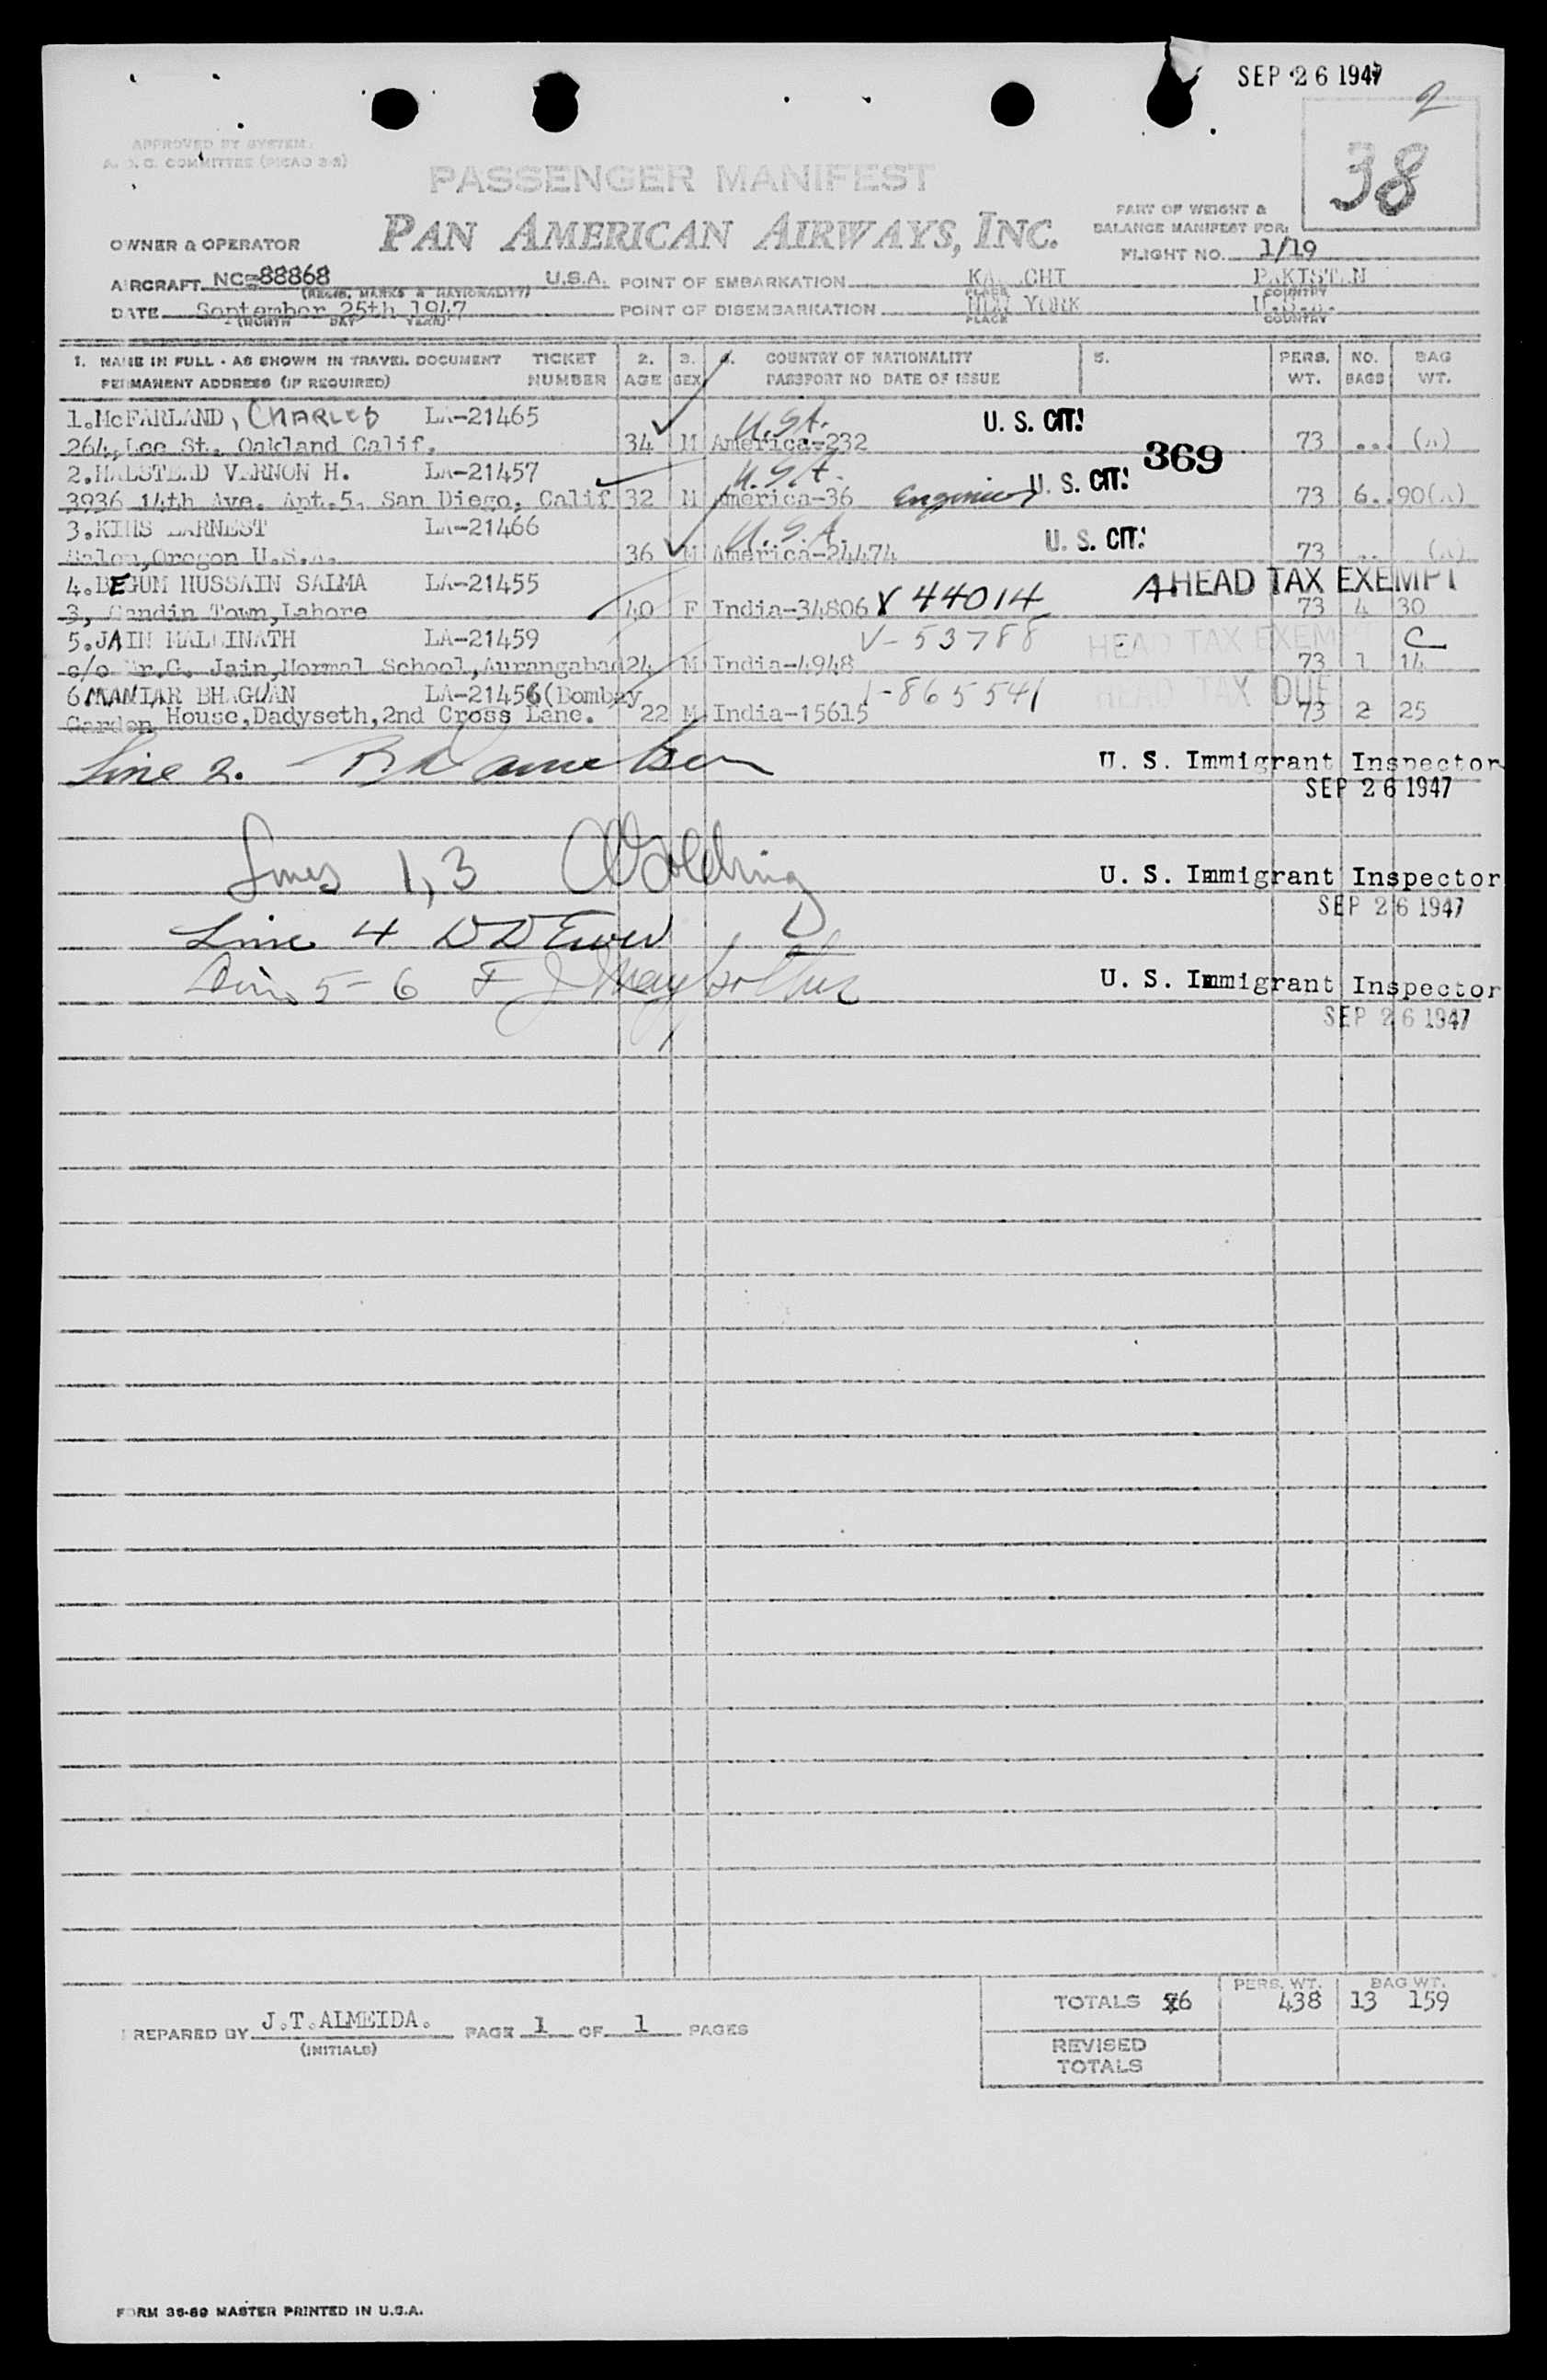 SEP 26 1947
2
38
APPROVED BY SYSTEM
COMMITTEE (PICAO 2-2)
PASSENGER MANIFEST
PAN AMERICAN AIRWAYS, INC.
PART OF WEIGHT &
BALANCE MANIFEST FOR:
FLIGHT NO. 1/19
OWNER & OPERATOR
AIRCRAFT NC-88868 U.S.A. POINT OF EMBARKATION KA CHI PAKISTAN
(REGIS. MARKS & NATIONALITY) PLACE COUNTRY
DATE September 25th 1947 POINT OF DISEMBARKATION NEW YORK U.S.A.
(MONTH DAY YEAR) PLACE COUNTRY
1. NAME IN FULL - AS SHOWN IN TRAVEL DOCUMENT TICKET 2. 3. 4. COUNTRY OF NATIONALITY 5. PERS. NO. BAG
PERMANENT ADDRESS (IF REQUIRED) NUMBER AGE SEX PASSPORT NO DATE OF ISSUE WT. BAGS WT.
1.McFARLAND, CHARLES LA-21465 U.S.A. U. S. CIT.
264,Lee St. Oakland Calif. 34 M America-232 73 ... (A)
369
2.HALSTEAD VERNON H. LA-21457 U.S.A. U. S. CIT.
3936 14th Ave. Apt.5, San Diego, Calif 32 M America-36 Engineer 73 6..90(A)
3.KIMS EARNEST LA-21466 U.S.A. U. S. CIT.
Salem,Oregon U.S.A. 36 M America-24474 73 .. (A)
4.BEGUM HUSSAIN SALMA LA-21455 HEAD TAX EXEMPT
3, Town,Lahore 40 F India-34806 V 44014 73 4 30
5.JAIN MALLINATH LA-21459 V-53788 HEAD TAX EXEMPT C
c/o Mr.C. Jain,Normal School,Aurangabad 24 M India-4948 73 1 14
6.MANIAR BHAGWAN LA-21456(Bombay V-865541 HEAD TAX DUE
Garden House,Dadyseth,2nd Cross Lane. 22 M India-15615 73 2 25
Line 2. U. S. Immigrant Inspector
SEP 26 1947
Lines 1,3 Golding U. S. Immigrant Inspector
SEP 26 1947
Line 4
Lines 5-6 U. S. Immigrant Inspector
SEP 26 1947
PERS. WT. BAG WT.
TOTALS 6 438 13 159
PREPARED BY J.T.ALMEIDA. PAGE 1 OF 1 PAGES
(INITIALS)
REVISED
TOTALS
FORM 36-89 MASTER PRINTED IN U.S.A.